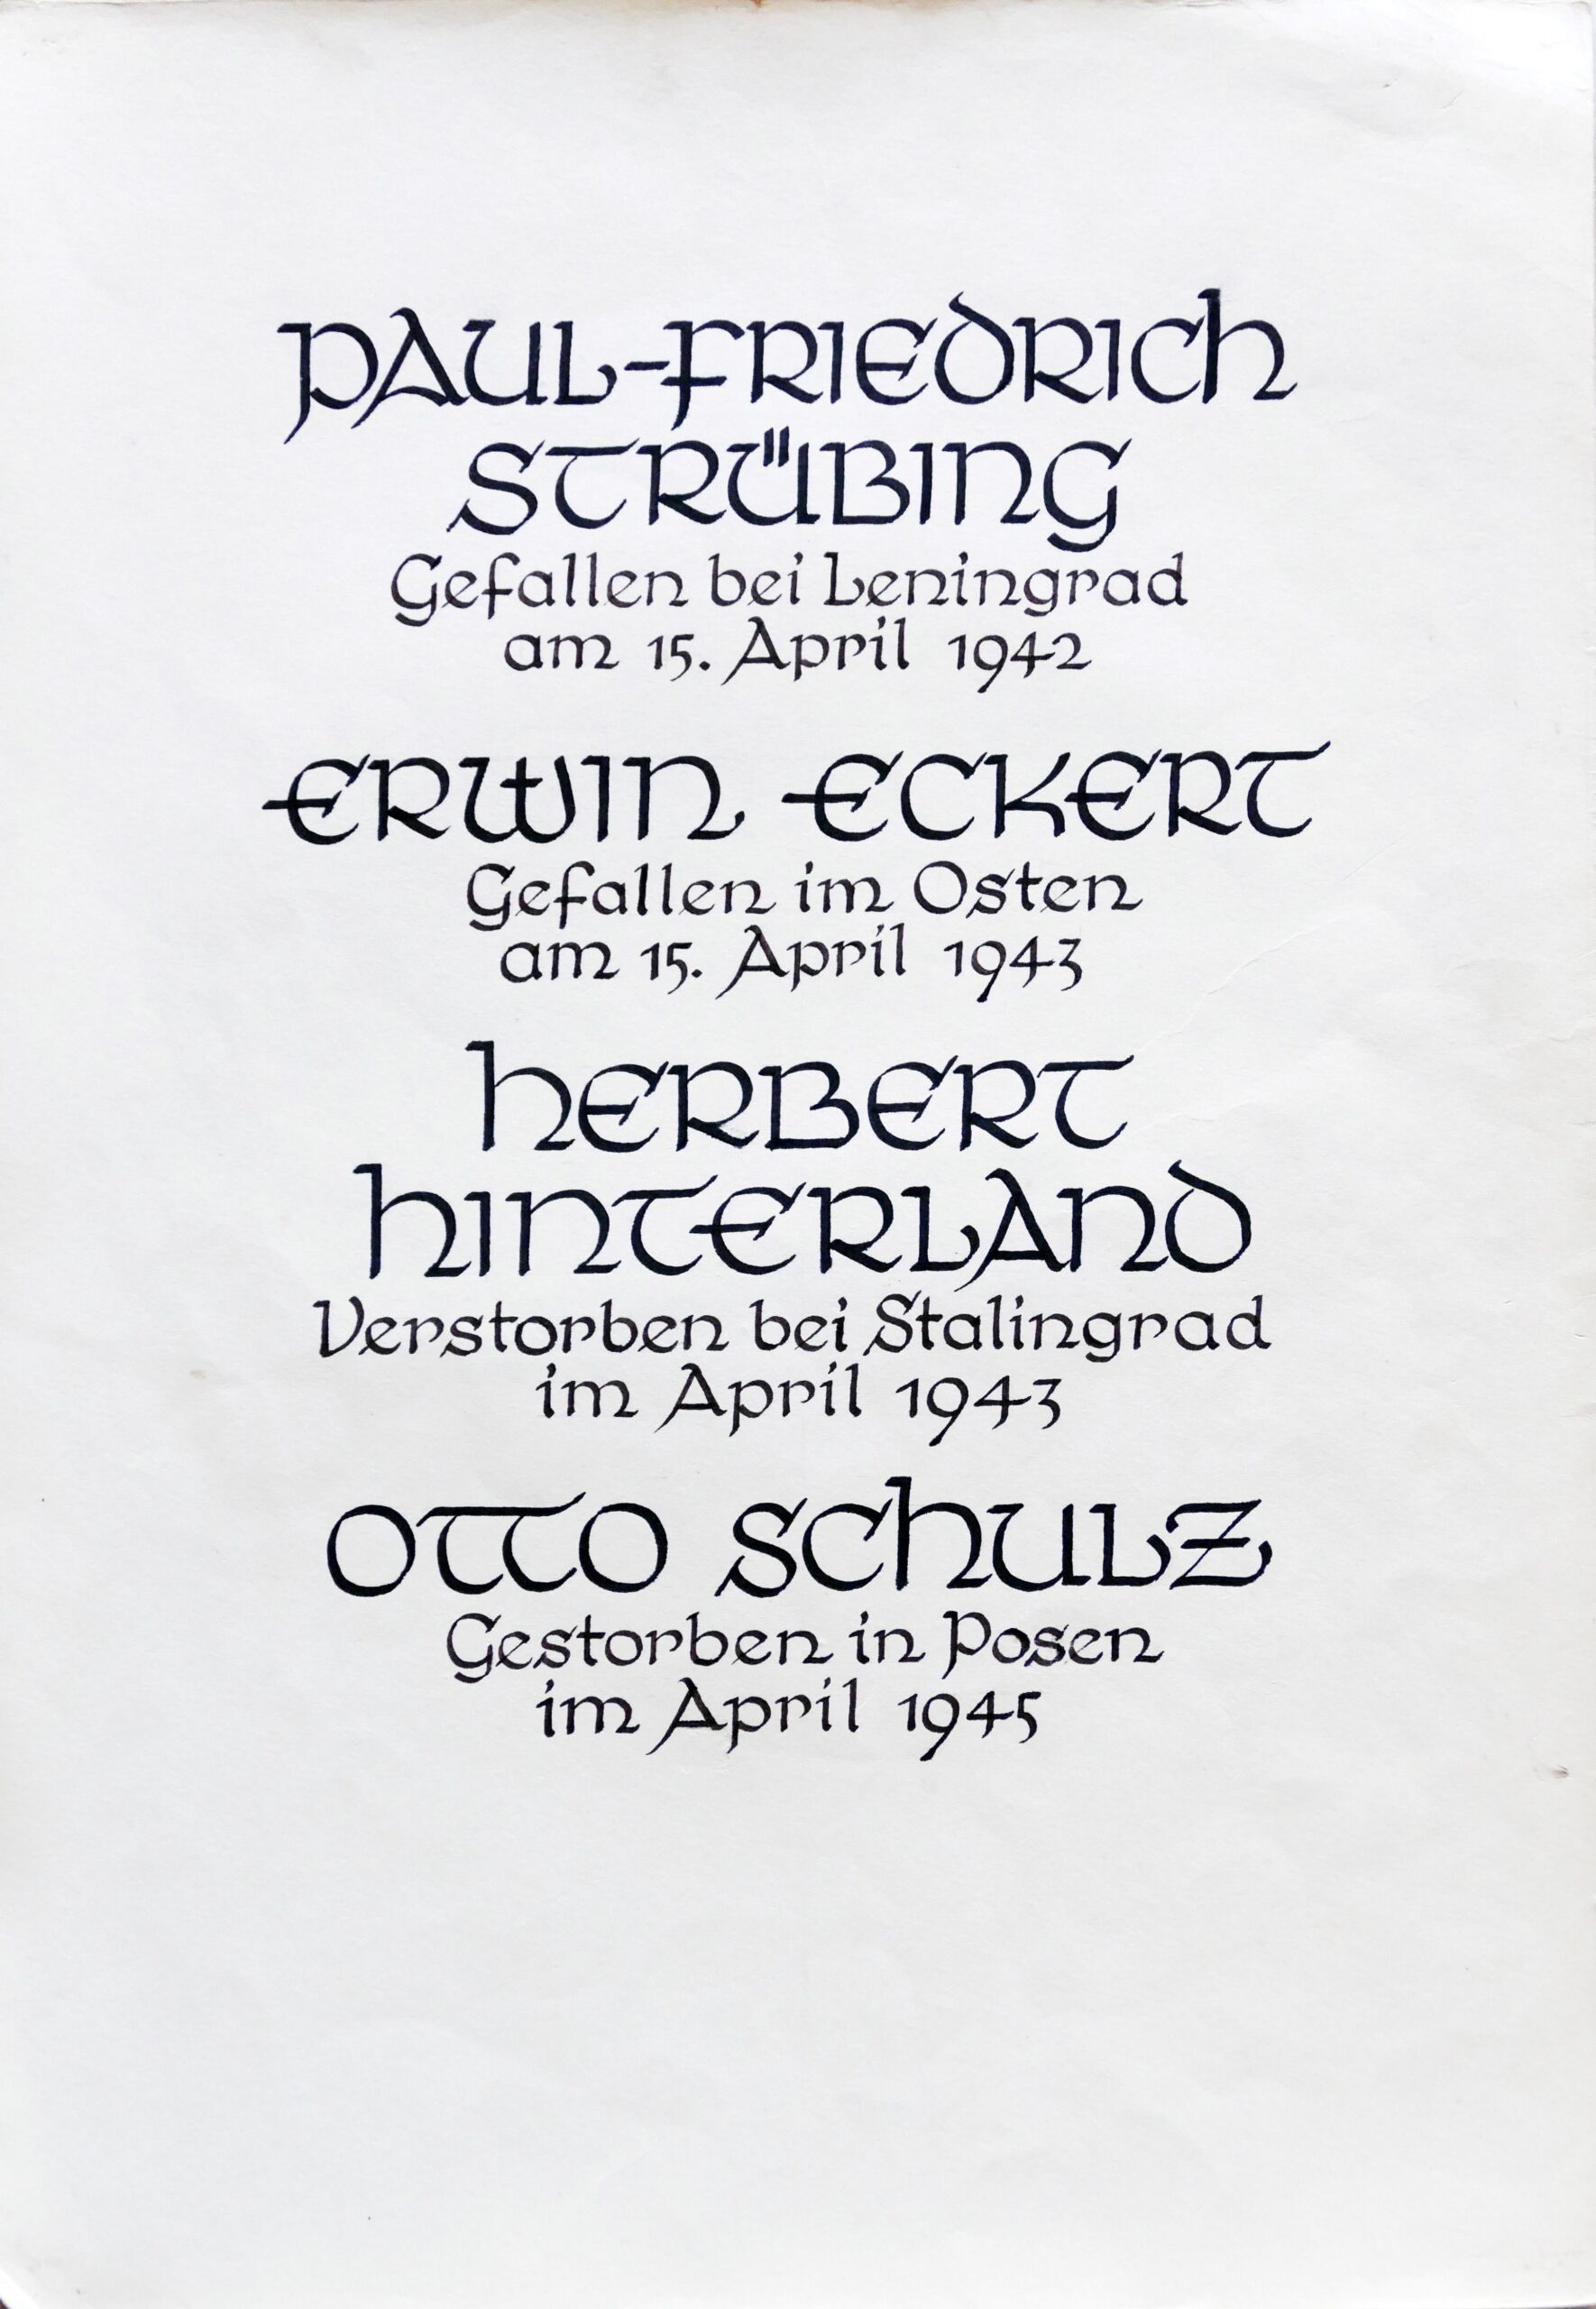 PAUL-FRIEDRICH
STRÜBING
Gefallen bei Leningrad
am 15. April 1942
ERWIN ECKERT
Gefallen im Osten
am 15. April 1943
HERBERT
HINTERLAND
Verstorben bei Stalingrad
im April 1943
OTTO SCHULZ
Gestorben in Posen
im April 1945